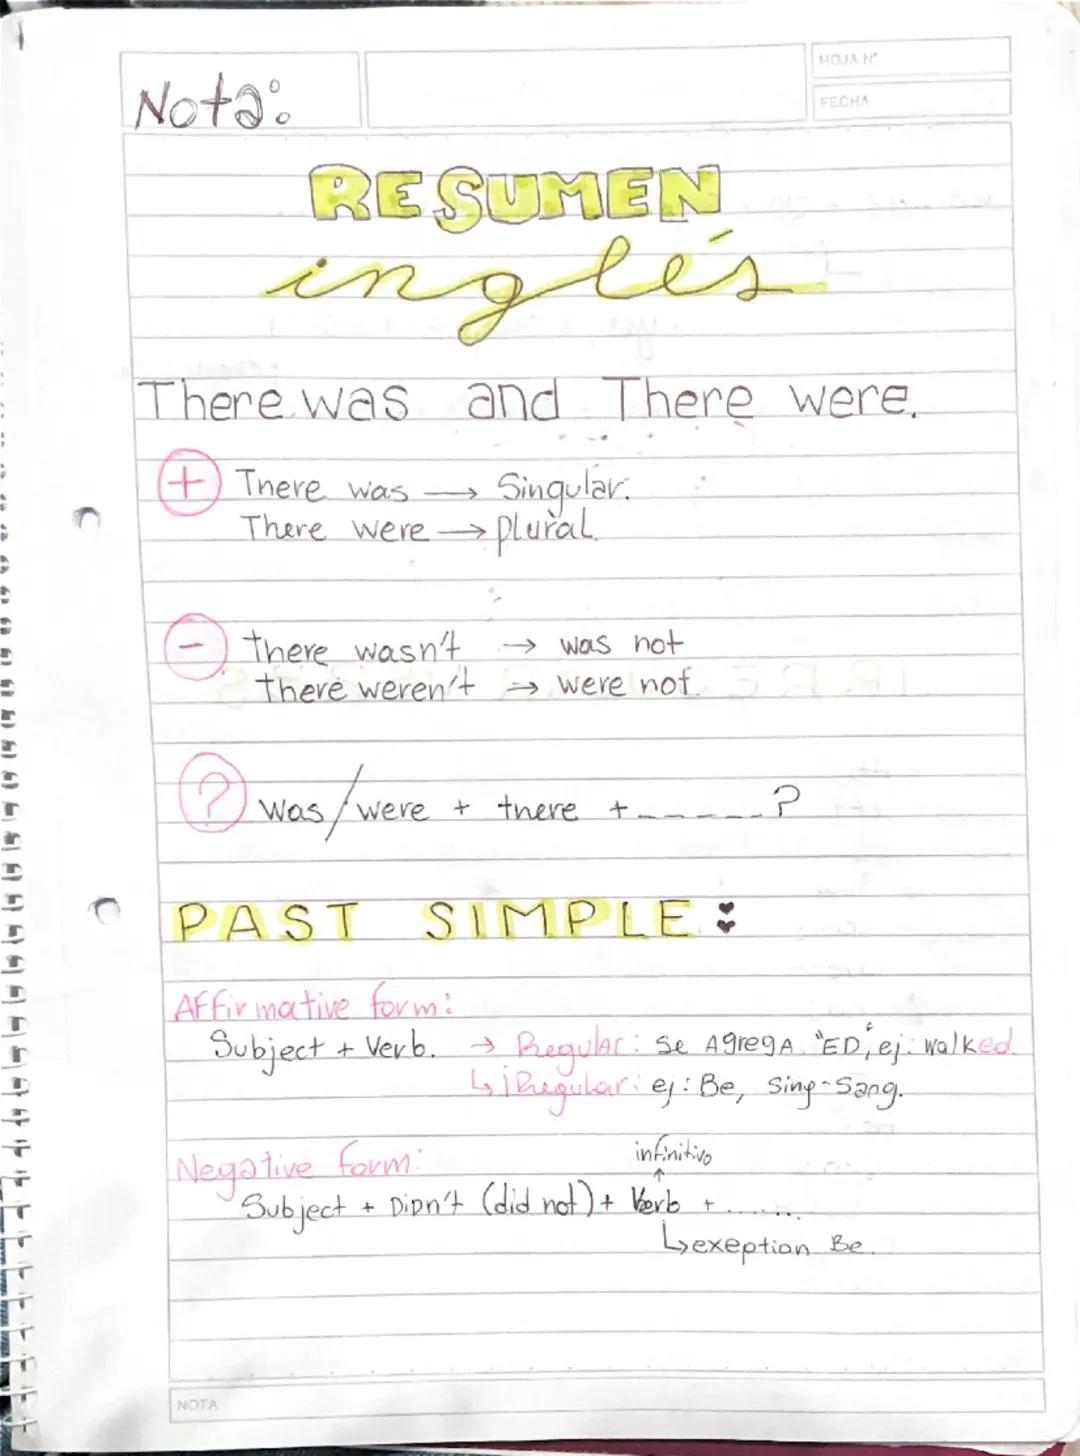 HOJA N°
Nota:
FECHA
RESUMEN
inglés
There was and There were.
+ There was → Singular.
There were → plural.
- there wasn't → was not
there weren't → were not.
? Was/were + there + ------?
PAST SIMPLE:
Affirmative form:
Subject + Verb. → Regular: se Agrega "ED", ej: walked.
↳ iRegular: ej: Be, Sing-Sang.
Negative form:
infinitivo
↑
Subject + Didn't (did not) + Verb + ........
↳ exeption Be.
NOTA